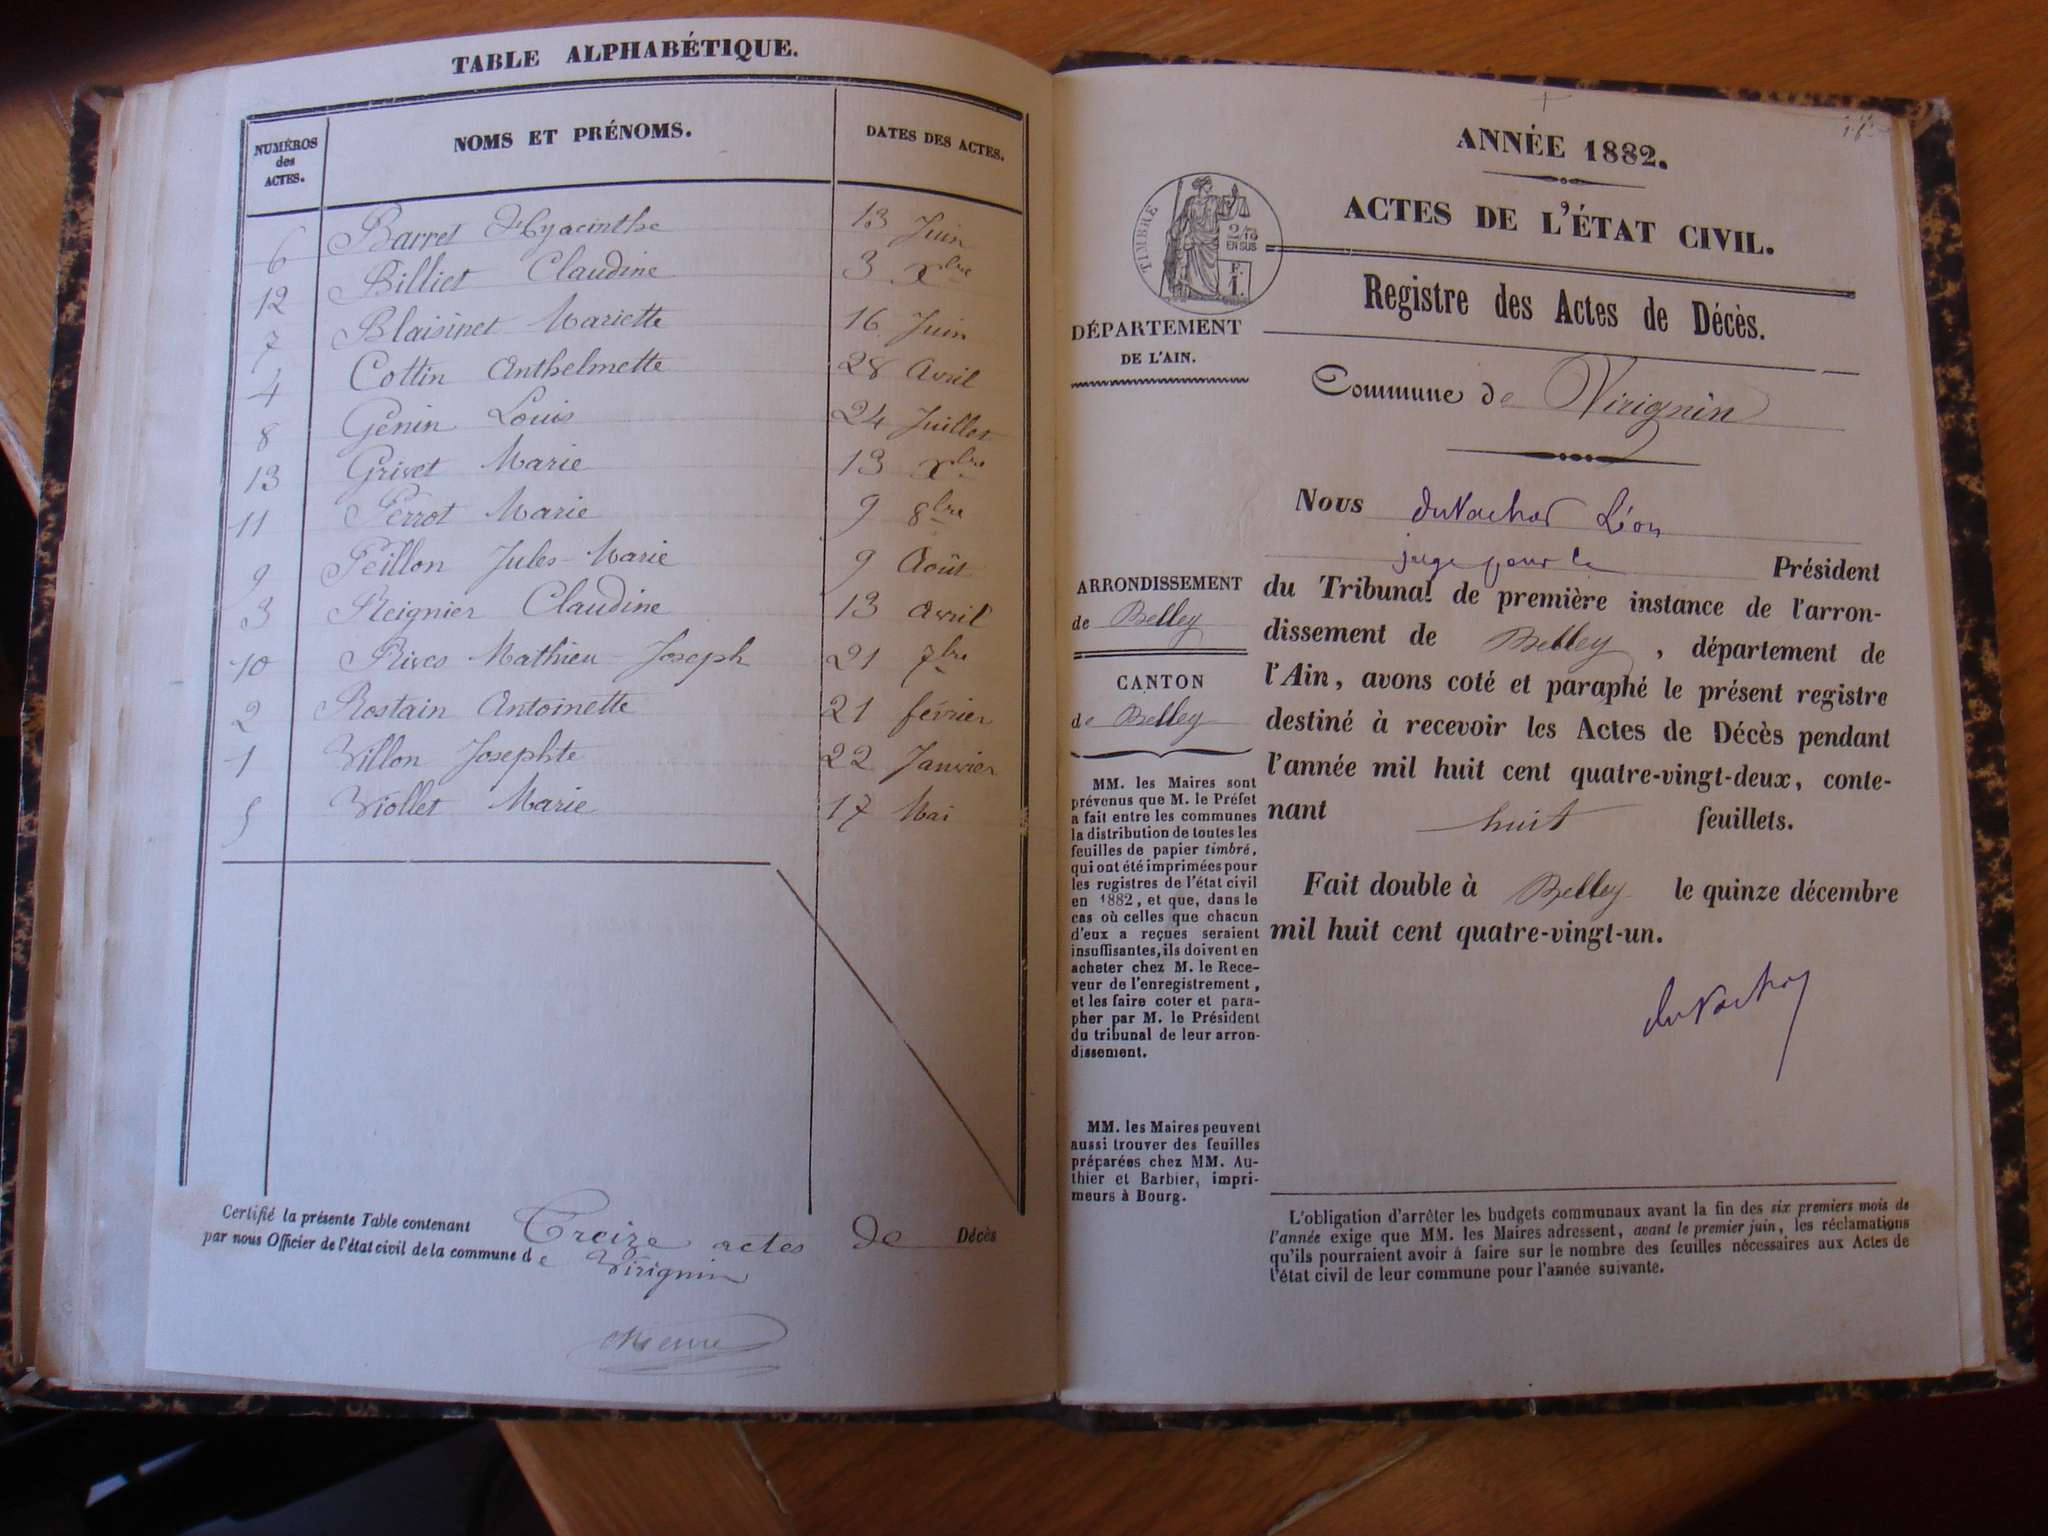 TABLE ALPHABÉTIQUE.
NUMÉROS des ACTES.
NOMS ET PRÉNOMS.
DATES DES ACTES.
6 Barret Hyacinthe 13 Juin
12 Billiet Claudine 3 Xbre
7 Blaisinet Mariette 16 Juin
4 Cottin Anthelmette 28 Avril
8 Genin Louis 24 Juillet
13 Grivet Marie 13 Xbre
11 Perrot Marie 9 8bre
9 Peillon Jules-Marie 9 Août
3 Reignier Claudine 13 avril
10 Rives Mathieu-Joseph 21 7bre
2 Rostain Antoinette 21 février
1 Villon Josephte 22 Janvier
5 Viollet Marie 17 Mai
Certifié la présente Table contenant Treize actes de Décès
par nous Officier de l'état civil de la commune de Virignin
ANNÉE 1882.
ACTES DE L'ÉTAT CIVIL.
TIMBRE
2/10
EN SUS
F.
1.
Registre des Actes de Décès.
DÉPARTEMENT
DE L'AIN.
Commune de Virignin
Nous Léon
juge pour le Président
du Tribunal de première instance de l'arron-
dissement de Belley, département de
l'Ain, avons coté et paraphé le présent registre
destiné à recevoir les Actes de Décès pendant
l'année mil huit cent quatre-vingt-deux, conte-
nant huit feuillets.
Fait double à Belley le quinze décembre
mil huit cent quatre-vingt-un.
ARRONDISSEMENT
de Belley
CANTON
de Belley
MM. les Maires sont
prévenus que M. le Préfet
a fait entre les communes
la distribution de toutes les
feuilles de papier timbré,
qui ont été imprimées pour
les registres de l'état civil
en 1882, et que, dans le
cas où celles que chacun
d'eux a reçues seraient
insuffisantes, ils doivent en
acheter chez M. le Rece-
veur de l'enregistrement,
et les faire coter et para-
pher par M. le Président
du tribunal de leur arron-
dissement.
MM. les Maires peuvent
aussi trouver des feuilles
préparées chez MM. Au-
thier et Barbier, impri-
meurs à Bourg.
L'obligation d'arrêter les budgets communaux avant la fin des six premiers mois de
l'année exige que MM. les Maires adressent, avant le premier juin, les réclamations
qu'ils pourraient avoir à faire sur le nombre des feuilles nécessaires aux Actes de
l'état civil de leur commune pour l'année suivante.